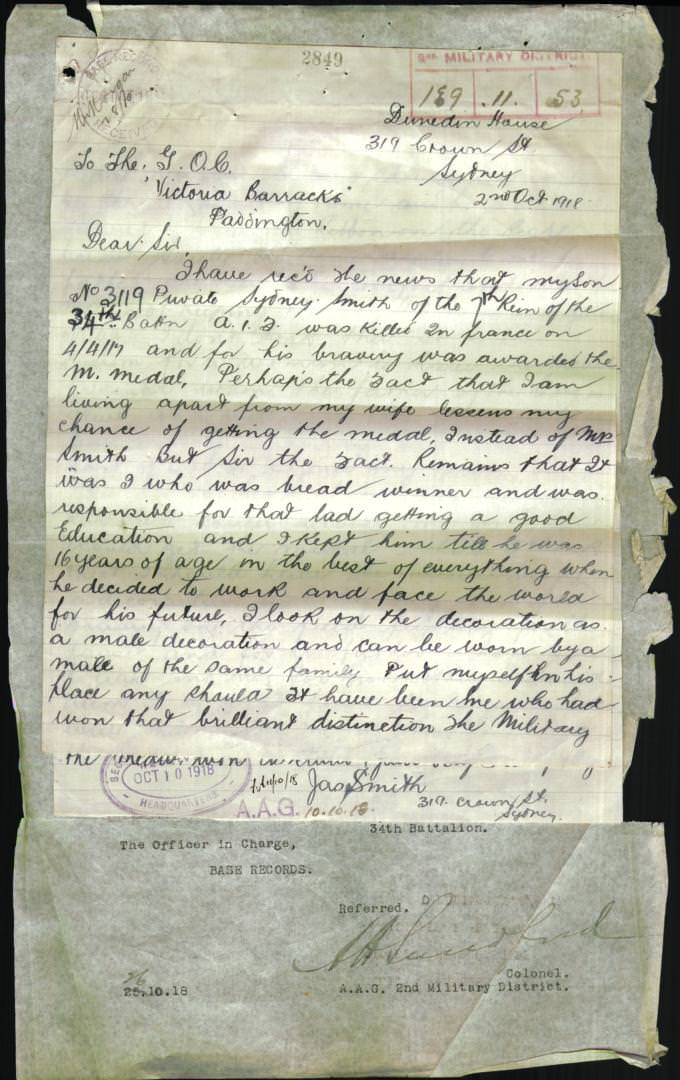 2849
2ND MILITARY DISTRICT
169 . 11 . 53
BASE RECORDS
RECEIVED
Dunedin House
319 Crown St.
Sydney
2nd Oct 1918
To The, G. O. C.
'Victoria Barracks'
Paddington.
Dear Sir,
I have rec'd the news that my son
No 3119 Private Sydney Smith of the 7th Rein of the
34th Batn A.I.F. was killed In france on
4/4/17 and for his bravery was awarded the
M. Medal, Perhaps the fact that I am
living apart from my wife lessens my
chance of getting the medal, Instead of Mrs
Smith But Sir the fact. Remains that It
was I who was bread winner and was
responsible for that lad getting a good
Education and I kept him till he was
16 years of age in the best of everything when
he decided to work and face the world
for his future, I look on the decoration as
a male decoration and can be worn by a
male of the same family Put myself In his
place any should It have been me who had
won that brilliant distinction The Military
OCT 10 1918
HEADQUARTERS
Jas Smith
A.A.G. 10.10.18
319 Crown St.
Sydney.
34th Battalion.
The Officer in Charge,
BASE RECORDS.
Referred.
Colonel.
26
25.10.18
A.A.G. 2nd Military District.